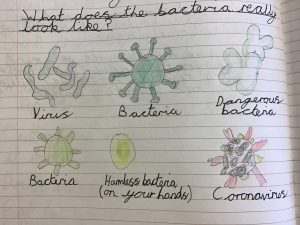 What does the bacteria really
look like?
Virus
Bacteria
Dangerous
bacteria
Bacteria
Hamless bacteria
(on your hands)
Coronavirus